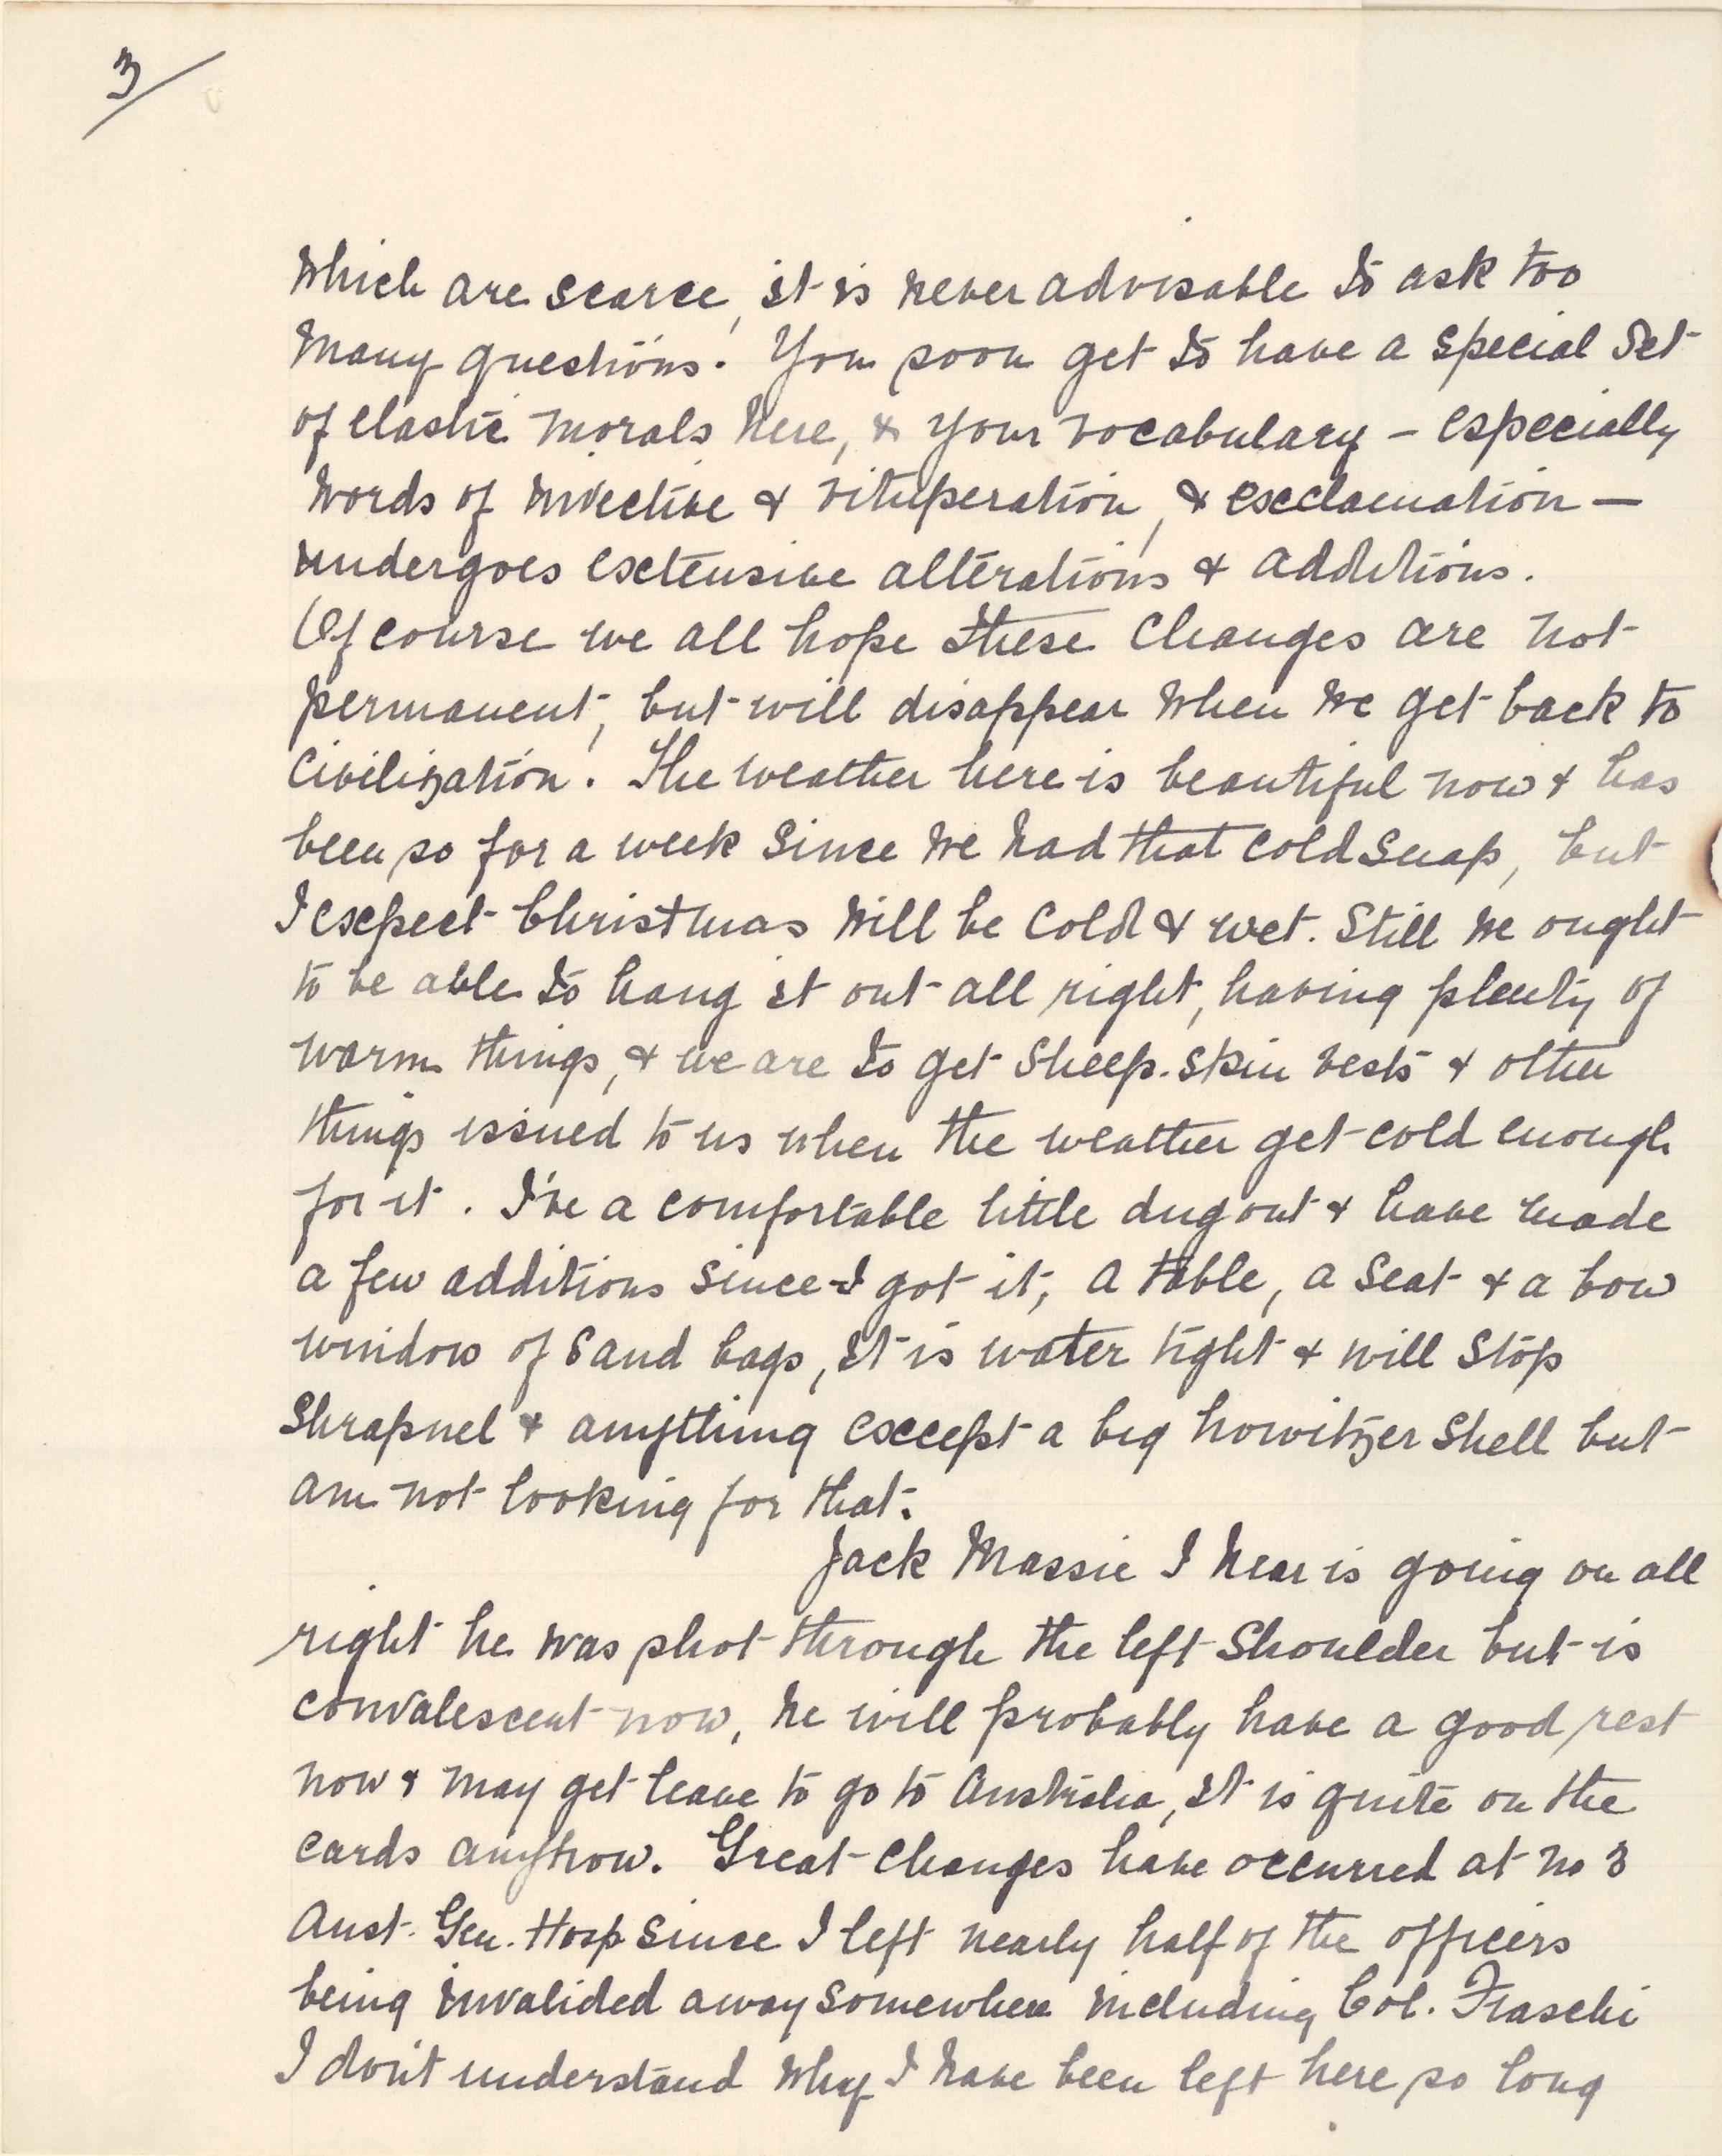 3/
which are scarce, it is never advisable to ask too
many questions. You soon get to have a special set
of elastic morals here, & your vocabulary - especially
words of invective & vituperation, & exclamation -
undergoes extensive alterations & additions.
Of course we all hope these changes are not
permanent, but will disappear when we get back to
civilization. The weather here is beautiful now & has
been so for a week since we had that cold snap, but
I expect Christmas will be cold & wet. Still we ought
to be able to hang it out all right, having plenty of
warm things, & we are to get sheep-skin vests & other
things issued to us when the weather get cold enough
for it. I've a comfortable little dug out & have made
a few additions since I got it, a table, a seat & a bow
window of sand bags, it is water tight & will stop
shrapnel & anything except a big howitzer shell but
am not looking for that.
Jack Massie I hear is going on all
right he was shot through the left shoulder but is
convalescent now, he will probably have a good rest
now & may get leave to go to Australia, it is quite on the
cards anyhow. Great changes have occurred at no 3
Aust. Gen. Hosp since I left nearly half of the officers
being invalided away somewhere including Col. Fiaschi
I don't understand why I have been left here so long